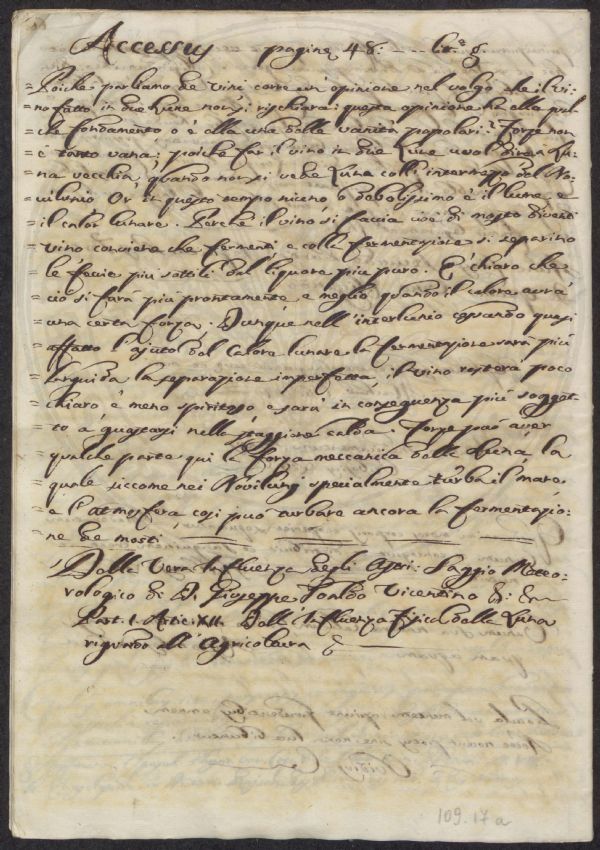 Accessus pagina 48: - - - lit.ª g.
= Poiche parliamo de vini corre un' opinione nel volgo che il vi:
= no fatto in due Lune non si rischiara: questa opinione ha ella qual
= che fondamento o è ella una delle vanità popolari? Forse non
= è tanto vana; poiche far il vino in due Lune vuol dire a Lu:
= na vecchia quando non si vede Luna coll' intermezzo del No:
= vilunio Or in questo tempo niuno o debolissimo è il lume e
= il calor lunare. Perche il vino si faccia cioè di mosto diventi
= vino conviene che fermenti e colla fermentazione si separino
= le feccie più sottili dal liquore più puro. E' chiaro che
= ciò si farà più prontamente e meglio quando il calore avrà
= una certa forza. Dunque nell' interlunio cessando quasi
= affatto l'ajuto del Calore lunare la fermentazione sarà più
= languida la separazione imperfetta, il vino resterà poco
= chiaro e meno spiritoso e sarà in conseguenza più sogget:
= to a guastarsi nella staggione calda. Forse può aver
= qualche parte qui la forza meccanica della Luna, la
= quale siccome nei Novilunj specialmente turba il mare
= e l'atmosfera così può turbare ancora la fermentazio:
= ne de mosti
Della Vera Influenza degli Astri: Saggio Meteo:
rologico di D. Giuseppe Toaldo Vicentino &:
Part. I. Artic. XII. Dell' Influenza Fisica della Luna
riguardo all' Agricoltura
109.17a